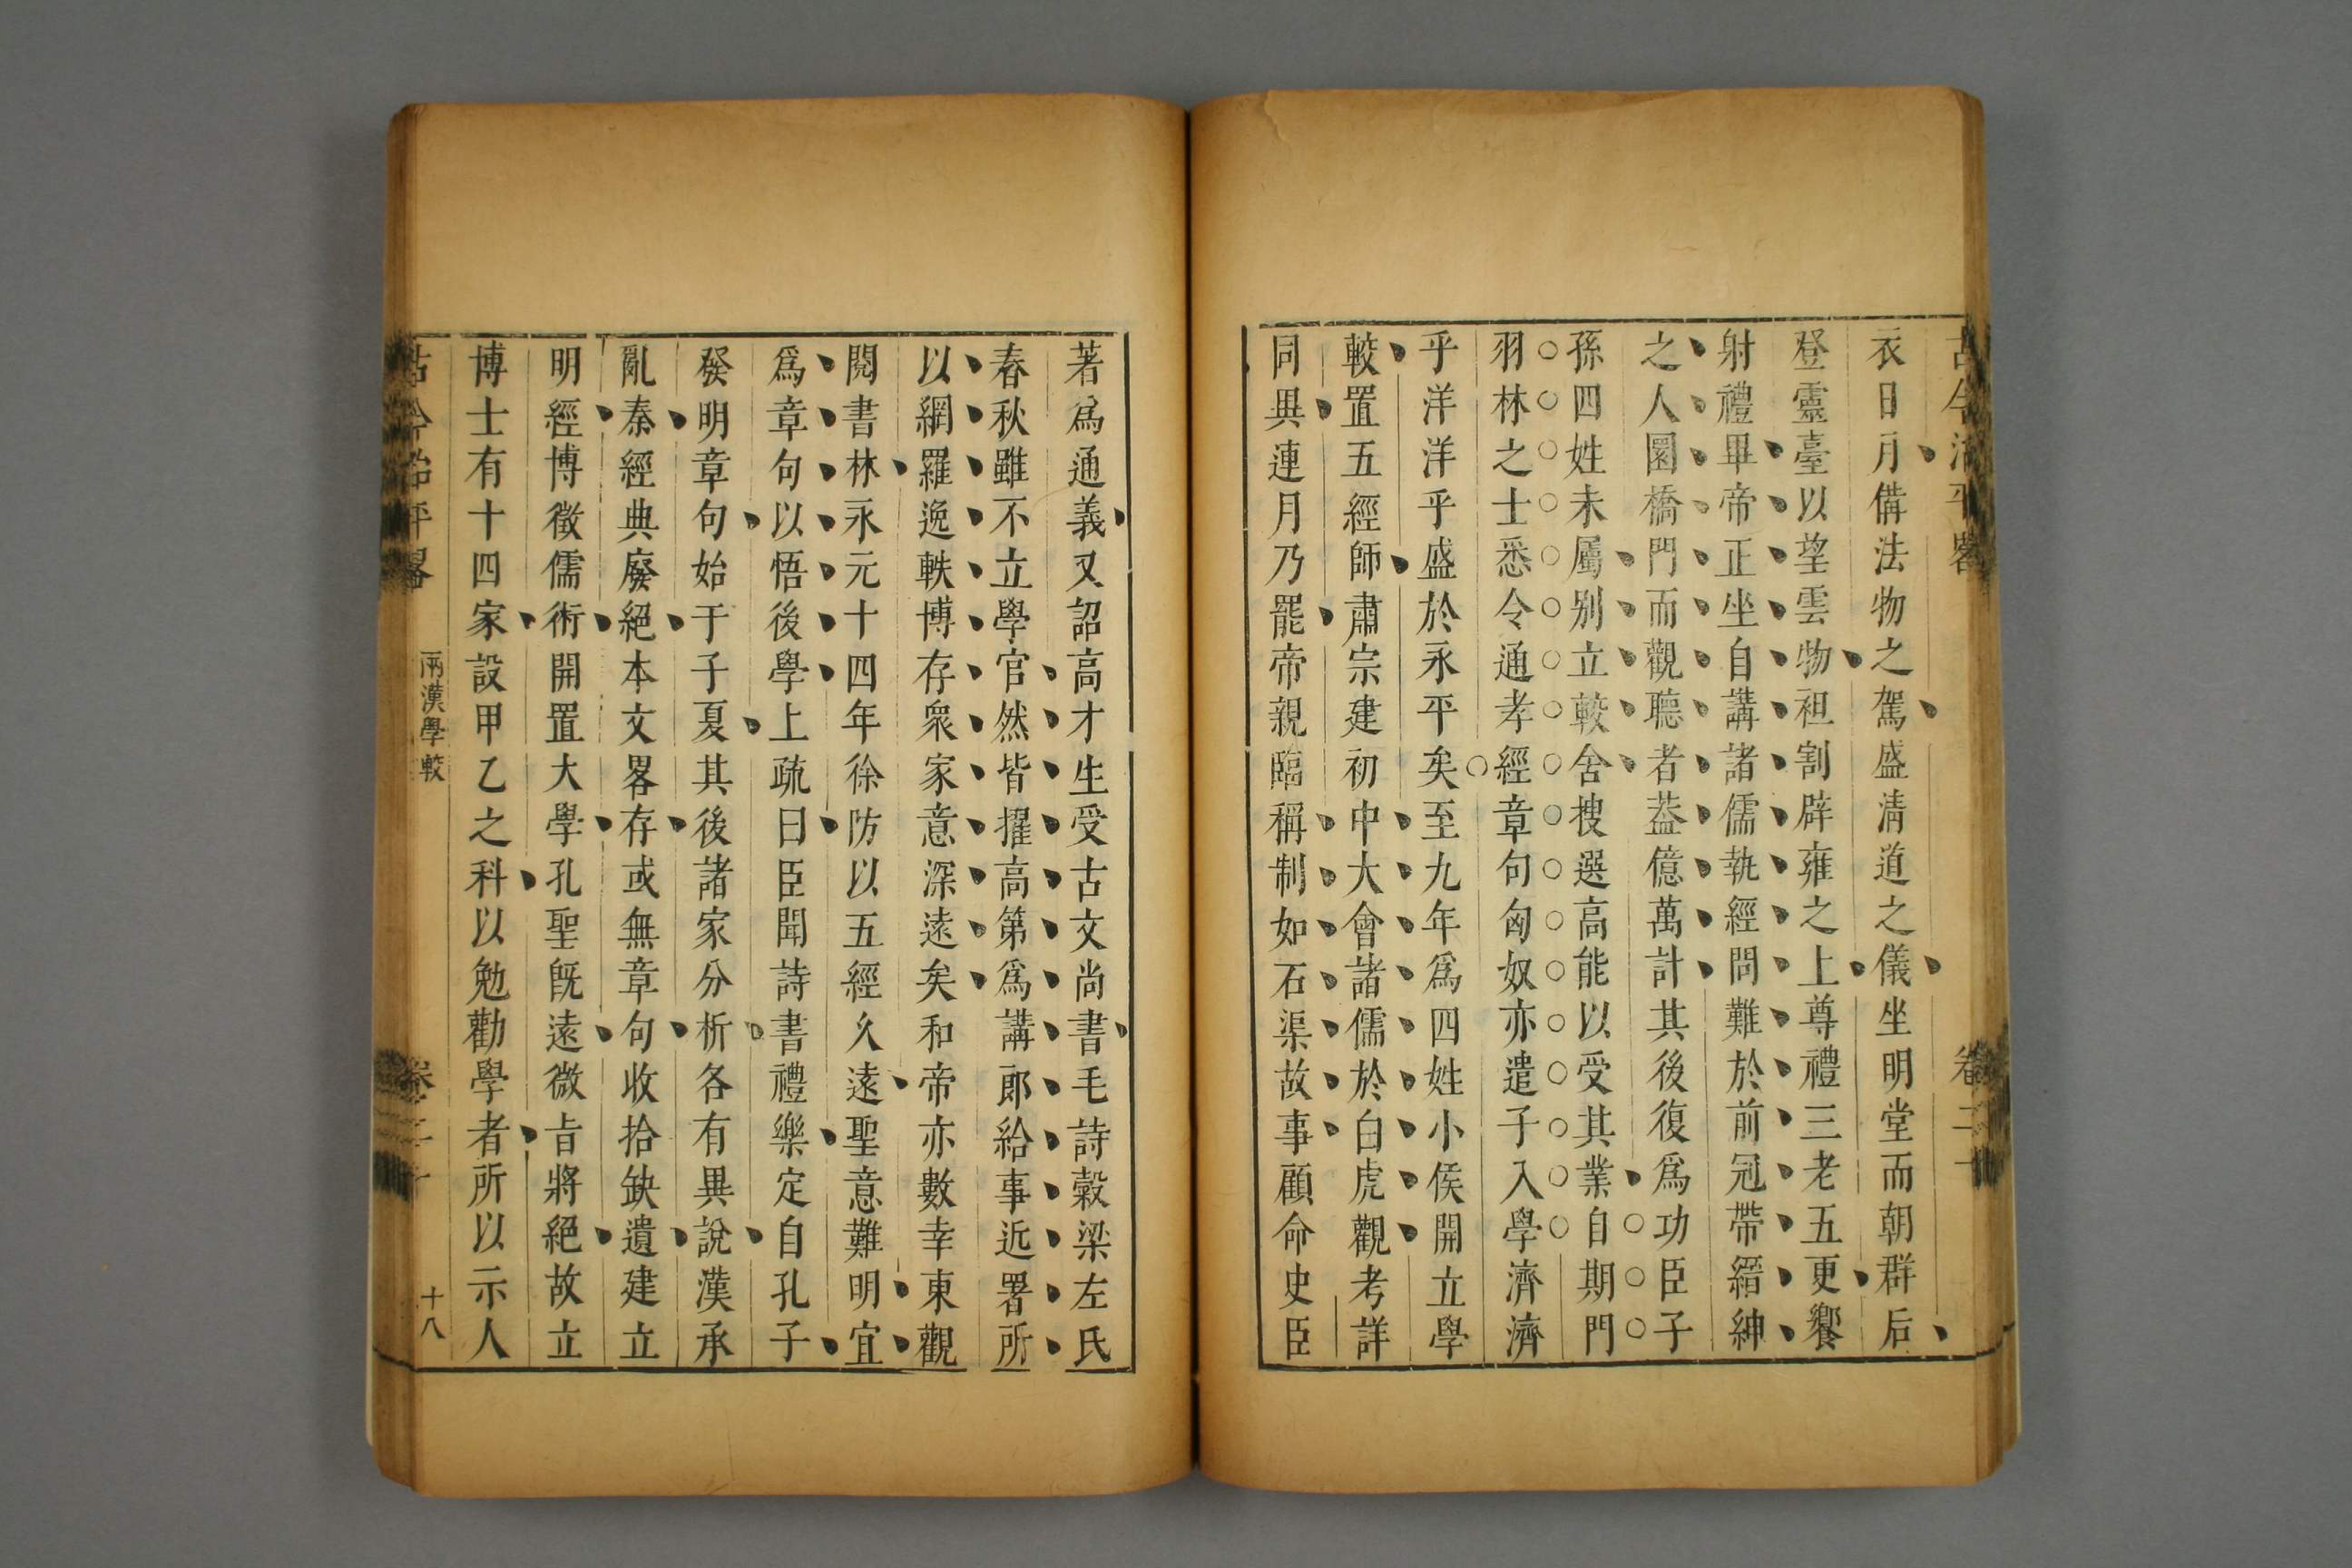 衣日月備法物之駕盛淸道之儀坐明堂而朝群后
登靈臺以望雲物袒割辟雍之上尊禮三老五更饗
射禮畢帝正坐自講諸儒執經問難於前冠帶縉紳
之人圜橋門而觀聽者葢億萬計其後復爲功臣子
孫四姓未屬别立較舍搜選高能以受其業自期門
羽林之士悉令通孝經章句匈奴亦遣子入學濟濟
乎洋洋乎盛於永平矣至九年爲四姓小侯開立學
較置五經師肅宗建初中大會諸儒於白虎觀考詳
同異連月乃罷帝親臨稱制如石渠故事顧命史臣
著爲通義又詔高才生受古文尚書毛詩穀梁左氏
春秋雖不立學官然皆擢高第爲講郎給事近署所
以網羅逸軼博存衆家意深遠矣和帝亦數幸東觀
閱書林永元十四年徐防以五經久遠聖意難明宜
爲章句以悟後學上疏曰臣聞詩書禮樂定自孔子
發明章句始于子夏其後諸家分析各有異說漢承
亂秦經典廢絕本文畧存或無章句收拾缺遺建立
明經博徵儒術開置大學孔聖旣遠微旨將絕故立
博士有十四家設甲乙之科以勉勸學者所以示人
古今治平畧 兩漢學較 卷二十 十八